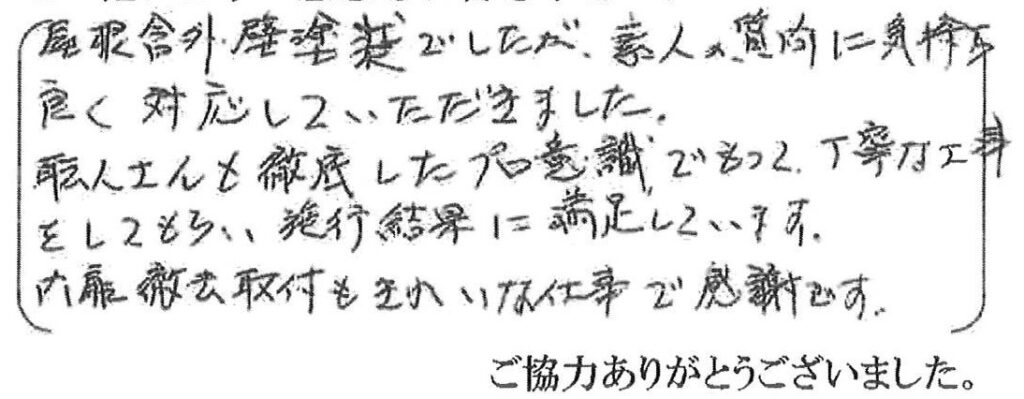 屋根含外壁塗装でしたが、素人の質問に気持ち
良く対応していただきました。
職人さんも徹底したプロ意識でもって、丁寧な工事
をしてもらい施行結果に満足しています。
内扉撤去取付もきれいな仕事で感謝です。
ご協力ありがとうございました。